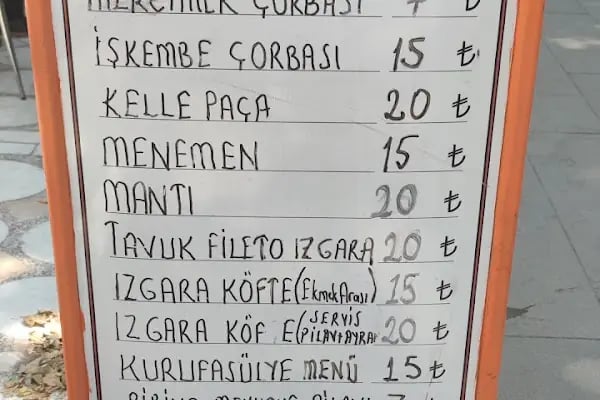 MERCİMEK ÇORBASI 7 ₺
İŞKEMBE ÇORBASI 15 ₺
KELLE PAÇA 20 ₺
MENEMEN 15 ₺
MANTI 20 ₺
TAVUK FİLETO IZGARA 20 ₺
IZGARA KÖFTE (Ekmek Arası) 15 ₺
IZGARA KÖF E (SERVİS PİLAV+AYRA 20 ₺
KURUFASÜLYE MENÜ 15 ₺